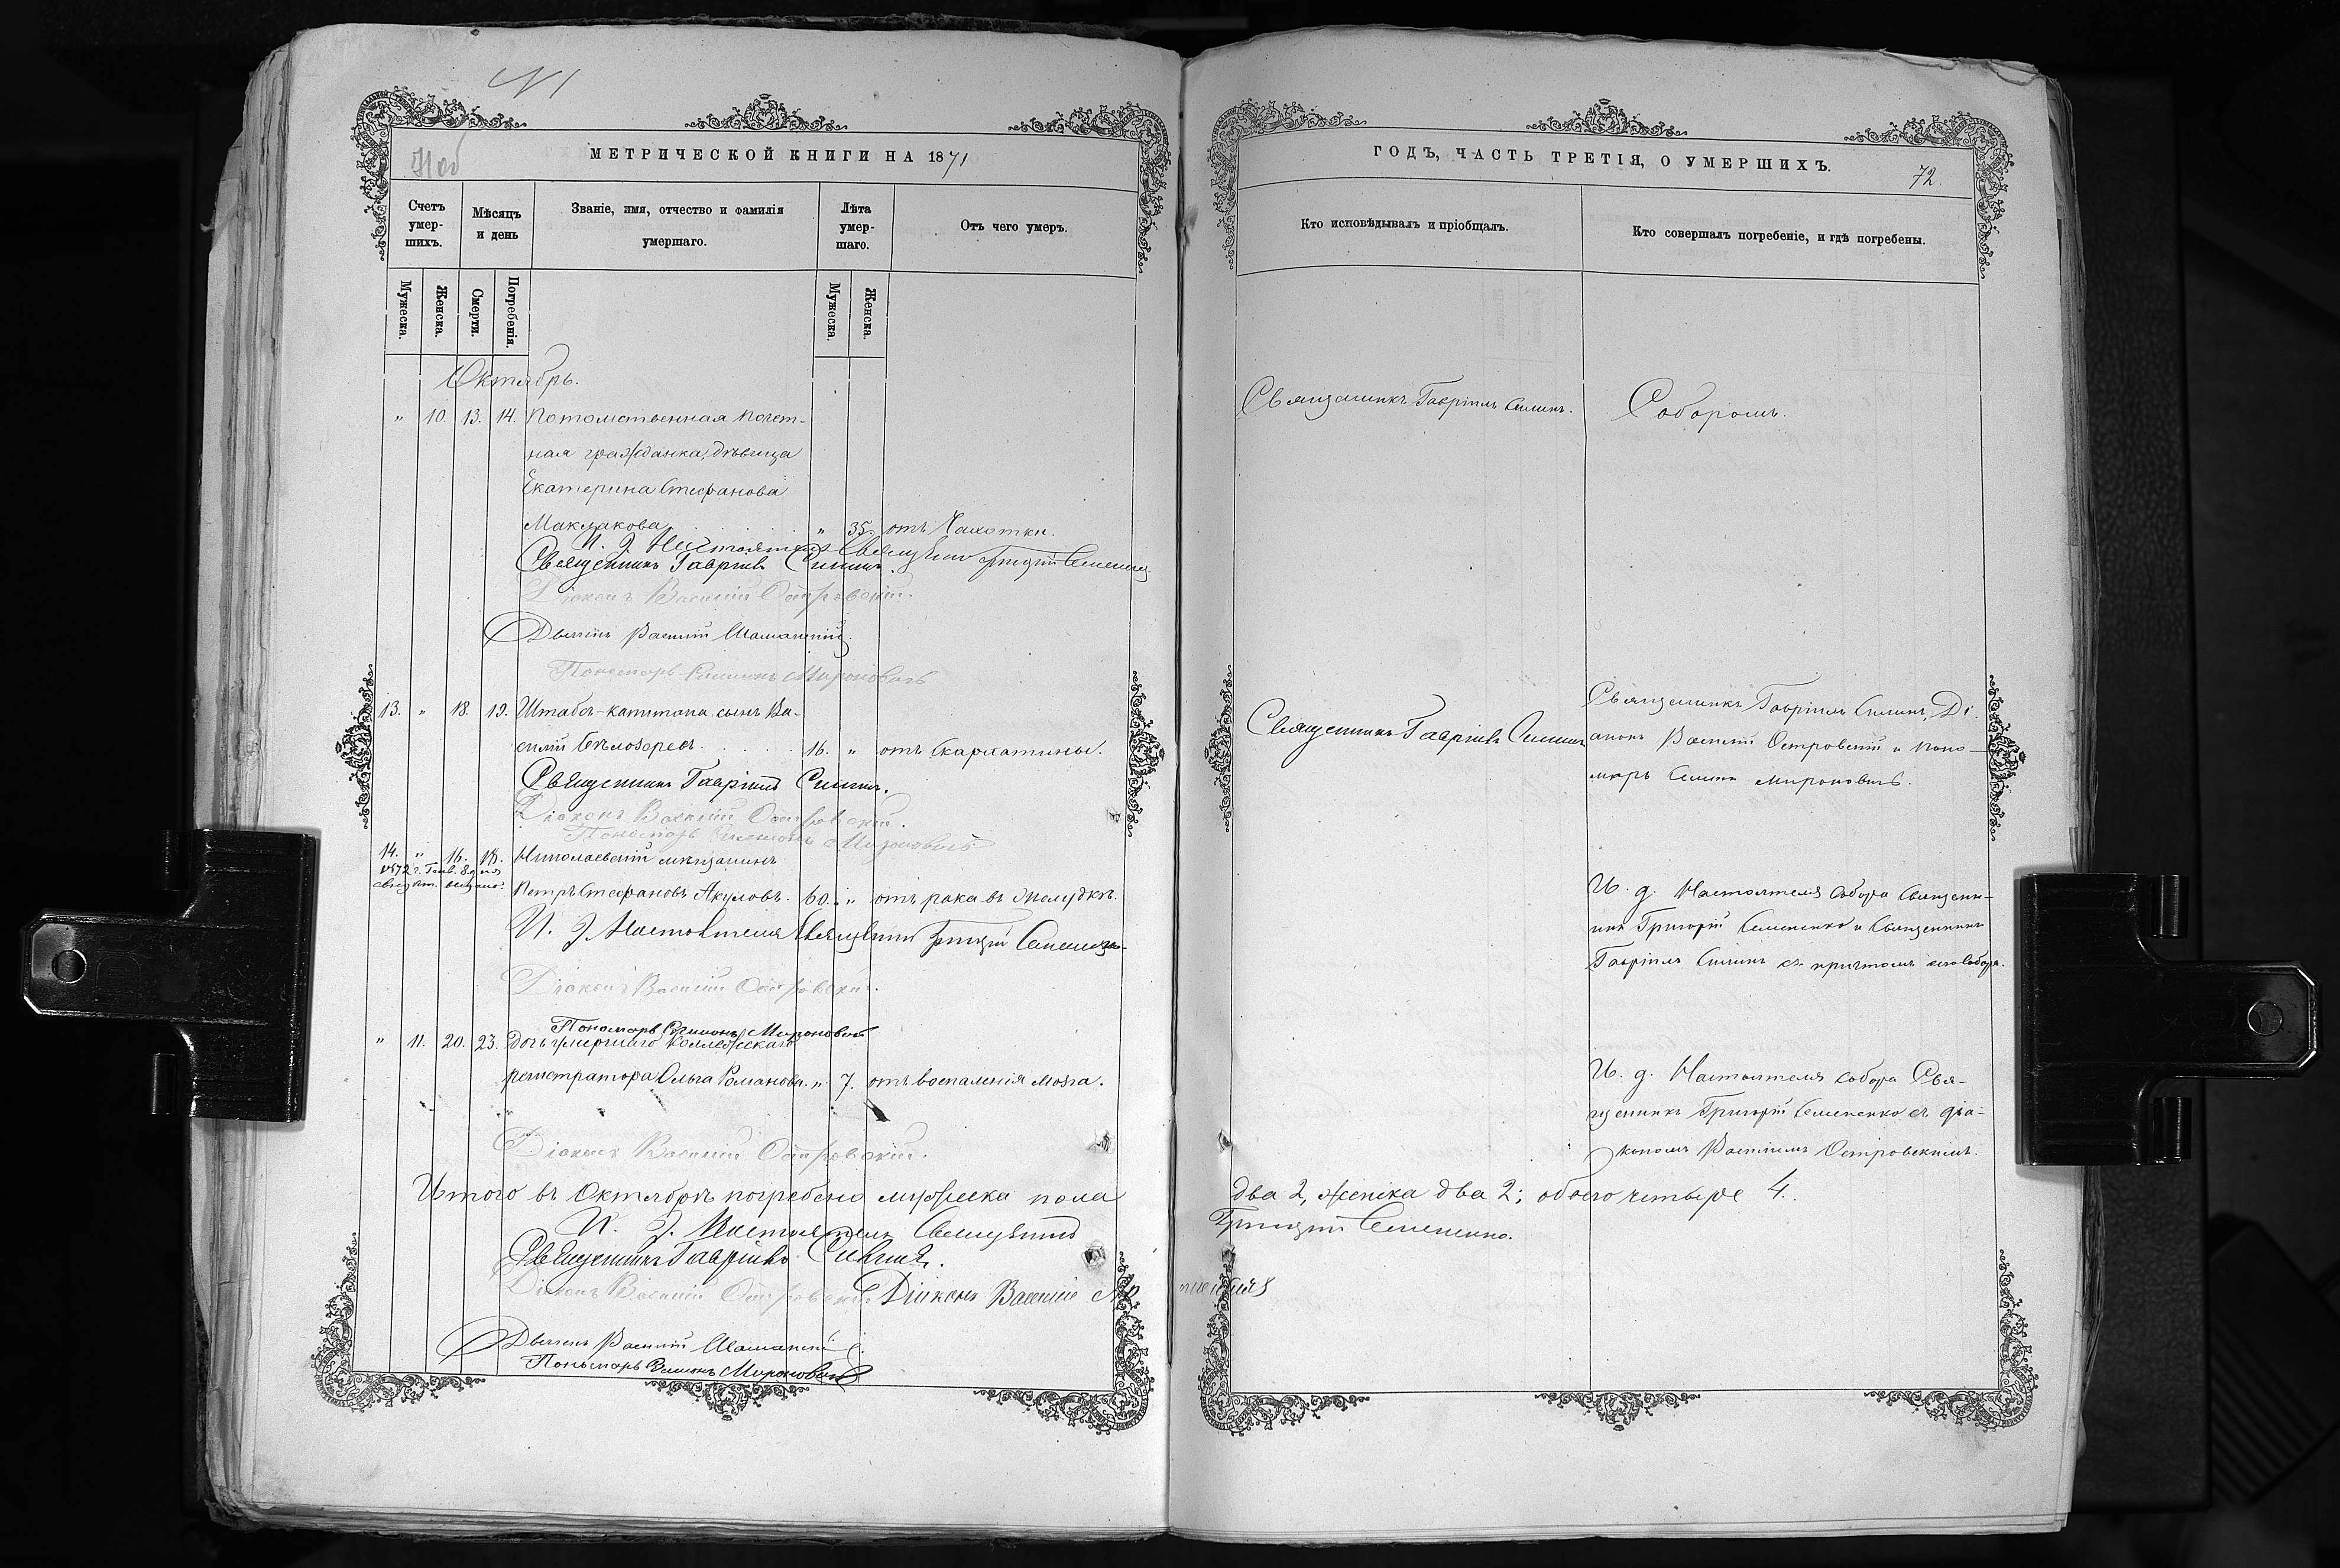 N 1
МЕТРИЧЕСКОЙ КНИГИ НА 1871
Счетъ умер-шихъ.
Мѣсяцъ и день
Званіе, имя, отчество и фамилія умершаго.
Лѣта умер-шаго.
Отъ чего умеръ.
Мужеска.
Женска.
Смерти.
Погребенія.
Мужеска.
Женска.
Октябрь.
" 10. 13. 14. Потомственная почет-
ная гражданка, дѣвица
Екатерина Стефанова
Маклакова " 35 отъ Чахотки.
И. Д. Настоятеля Священникъ Григорій Семененко
Священникъ Гавріилъ Силинъ.
Діаконъ Василій Островскій.
Дьячекъ Василій Шаманскій.
Пономарь Симеонъ Мироновичъ
13. " 18. 19. Штабсъ-капитана сынъ Ва-
силій Бѣлозерсъ 16. " отъ Скарлатины.
Священникъ Гавріилъ Силинъ.
Діаконъ Василій Островскій.
Пономарь Симеонъ Мироновичъ
14. " 16. 18. Николаевскій мѣщанинъ
1872 г. Генв. 8 дня
свид. выдано.
Петръ Стефановъ Акуловъ. 60. " отъ рака въ желудкѣ.
И. Д. Настоятеля Священникъ Григорій Семененко
Діаконъ Василій Островскій.
Пономарь Симеонъ Мироновичъ
" 11. 20. 23. Дочь умершаго Коллежскаго
регистратора Ольга Романова. " 7. отъ воспаленія мозга.
Діаконъ Василій Островскій.
Итого въ Октябрѣ погребено мужеска пола
И. Д. Настоятеля Священникъ
Священникъ Гавріилъ Силинъ.
Діаконъ Василій Островскій. Діаконъ Василій
Дьячекъ Василій Шаманскій.
Пономарь Симеонъ Мироновичъ
ГОДЪ, ЧАСТЬ ТРЕТІЯ, О УМЕРШИХЪ.
72.
Кто исповѣдывалъ и пріобщалъ.
Кто совершалъ погребеніе, и гдѣ погребены.
Священникъ Гавріилъ Силинъ.
Соборомъ.
Священникъ Гавріилъ Силинъ
Священникъ Гавріилъ Силинъ, Ді-
аконъ Василій Островскій и Поно-
марь Симеонъ Мироновичъ.
И. д. Настоятеля Собора Священ-
никъ Григорій Семененко и Священникъ
Гавріилъ Силинъ съ причтомъ сего Собора.
И. д. Настоятеля Собора Свя-
щенникъ Григорій Семененко съ діа-
кономъ Василіемъ Островскимъ.
два 2, женска два 2; обоего четыре 4.
Григорій Семененко.